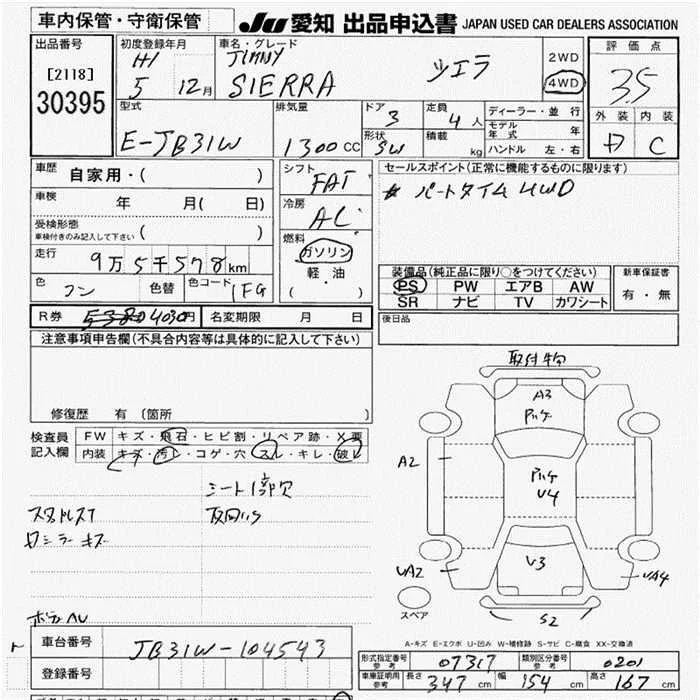 車内保管・守衛保管
JU 愛知 出品申込書 JAPAN USED CAR DEALERS ASSOCIATION
出品番号
[2118]
30395
初度登録年月
H1
5 12月
車名・グレード
JIMNY
SIERRA シエラ
2WD
4WD
評価点
3.5
外装 内装
D C
型式
E-JB31W
排気量
1300 CC
ドア 3
形状 SW
定員 4 人
積載 kg
ディーラー・並行
モデル年式 年
ハンドル 左・右
車歴 自家用・( )
車検 年 月( 日)
受検形態
車検付きのみ記入して下さい ( )
走行 9万5千578km
色 コン 色替 色コード 1FG
シフト
FAT
冷房
AC
燃料
ガソリン
軽・油
( ・ )
セールスポイント(正常に機能するものに限ります)
パートタイム4WD
装備品(純正品に限り○をつけてください)
PS PW エアB AW
SR ナビ TV カワシート
新車保証書
有・無
R券 5380 4030円 名変期限 月 日
後日品
注意事項申告欄(不具合内容等は具体的に記入して下さい)
修復歴 有(箇所 )
検査員
記入欄
FW キズ・飛石・ヒビ割・リペア跡・X要
内装 キズ・汚レ・コゲ・穴・スレ・キレ・破レ
シート1部穴
スタドレスT
ロシラーキズ
取付物
A3
A2
V4
V3
UA2
UA4
S2
スペア
A-キズ E-エクボ U-凹み W-補修跡 S-サビ C-腐食 XX-交換済
車台番号 JB31W-104543
登録番号
形式指定番号
参考 07317
類別区分番号
参考 0201
車庫証明用
参考 長さ 347 cm 幅 154 cm 高さ 167 cm